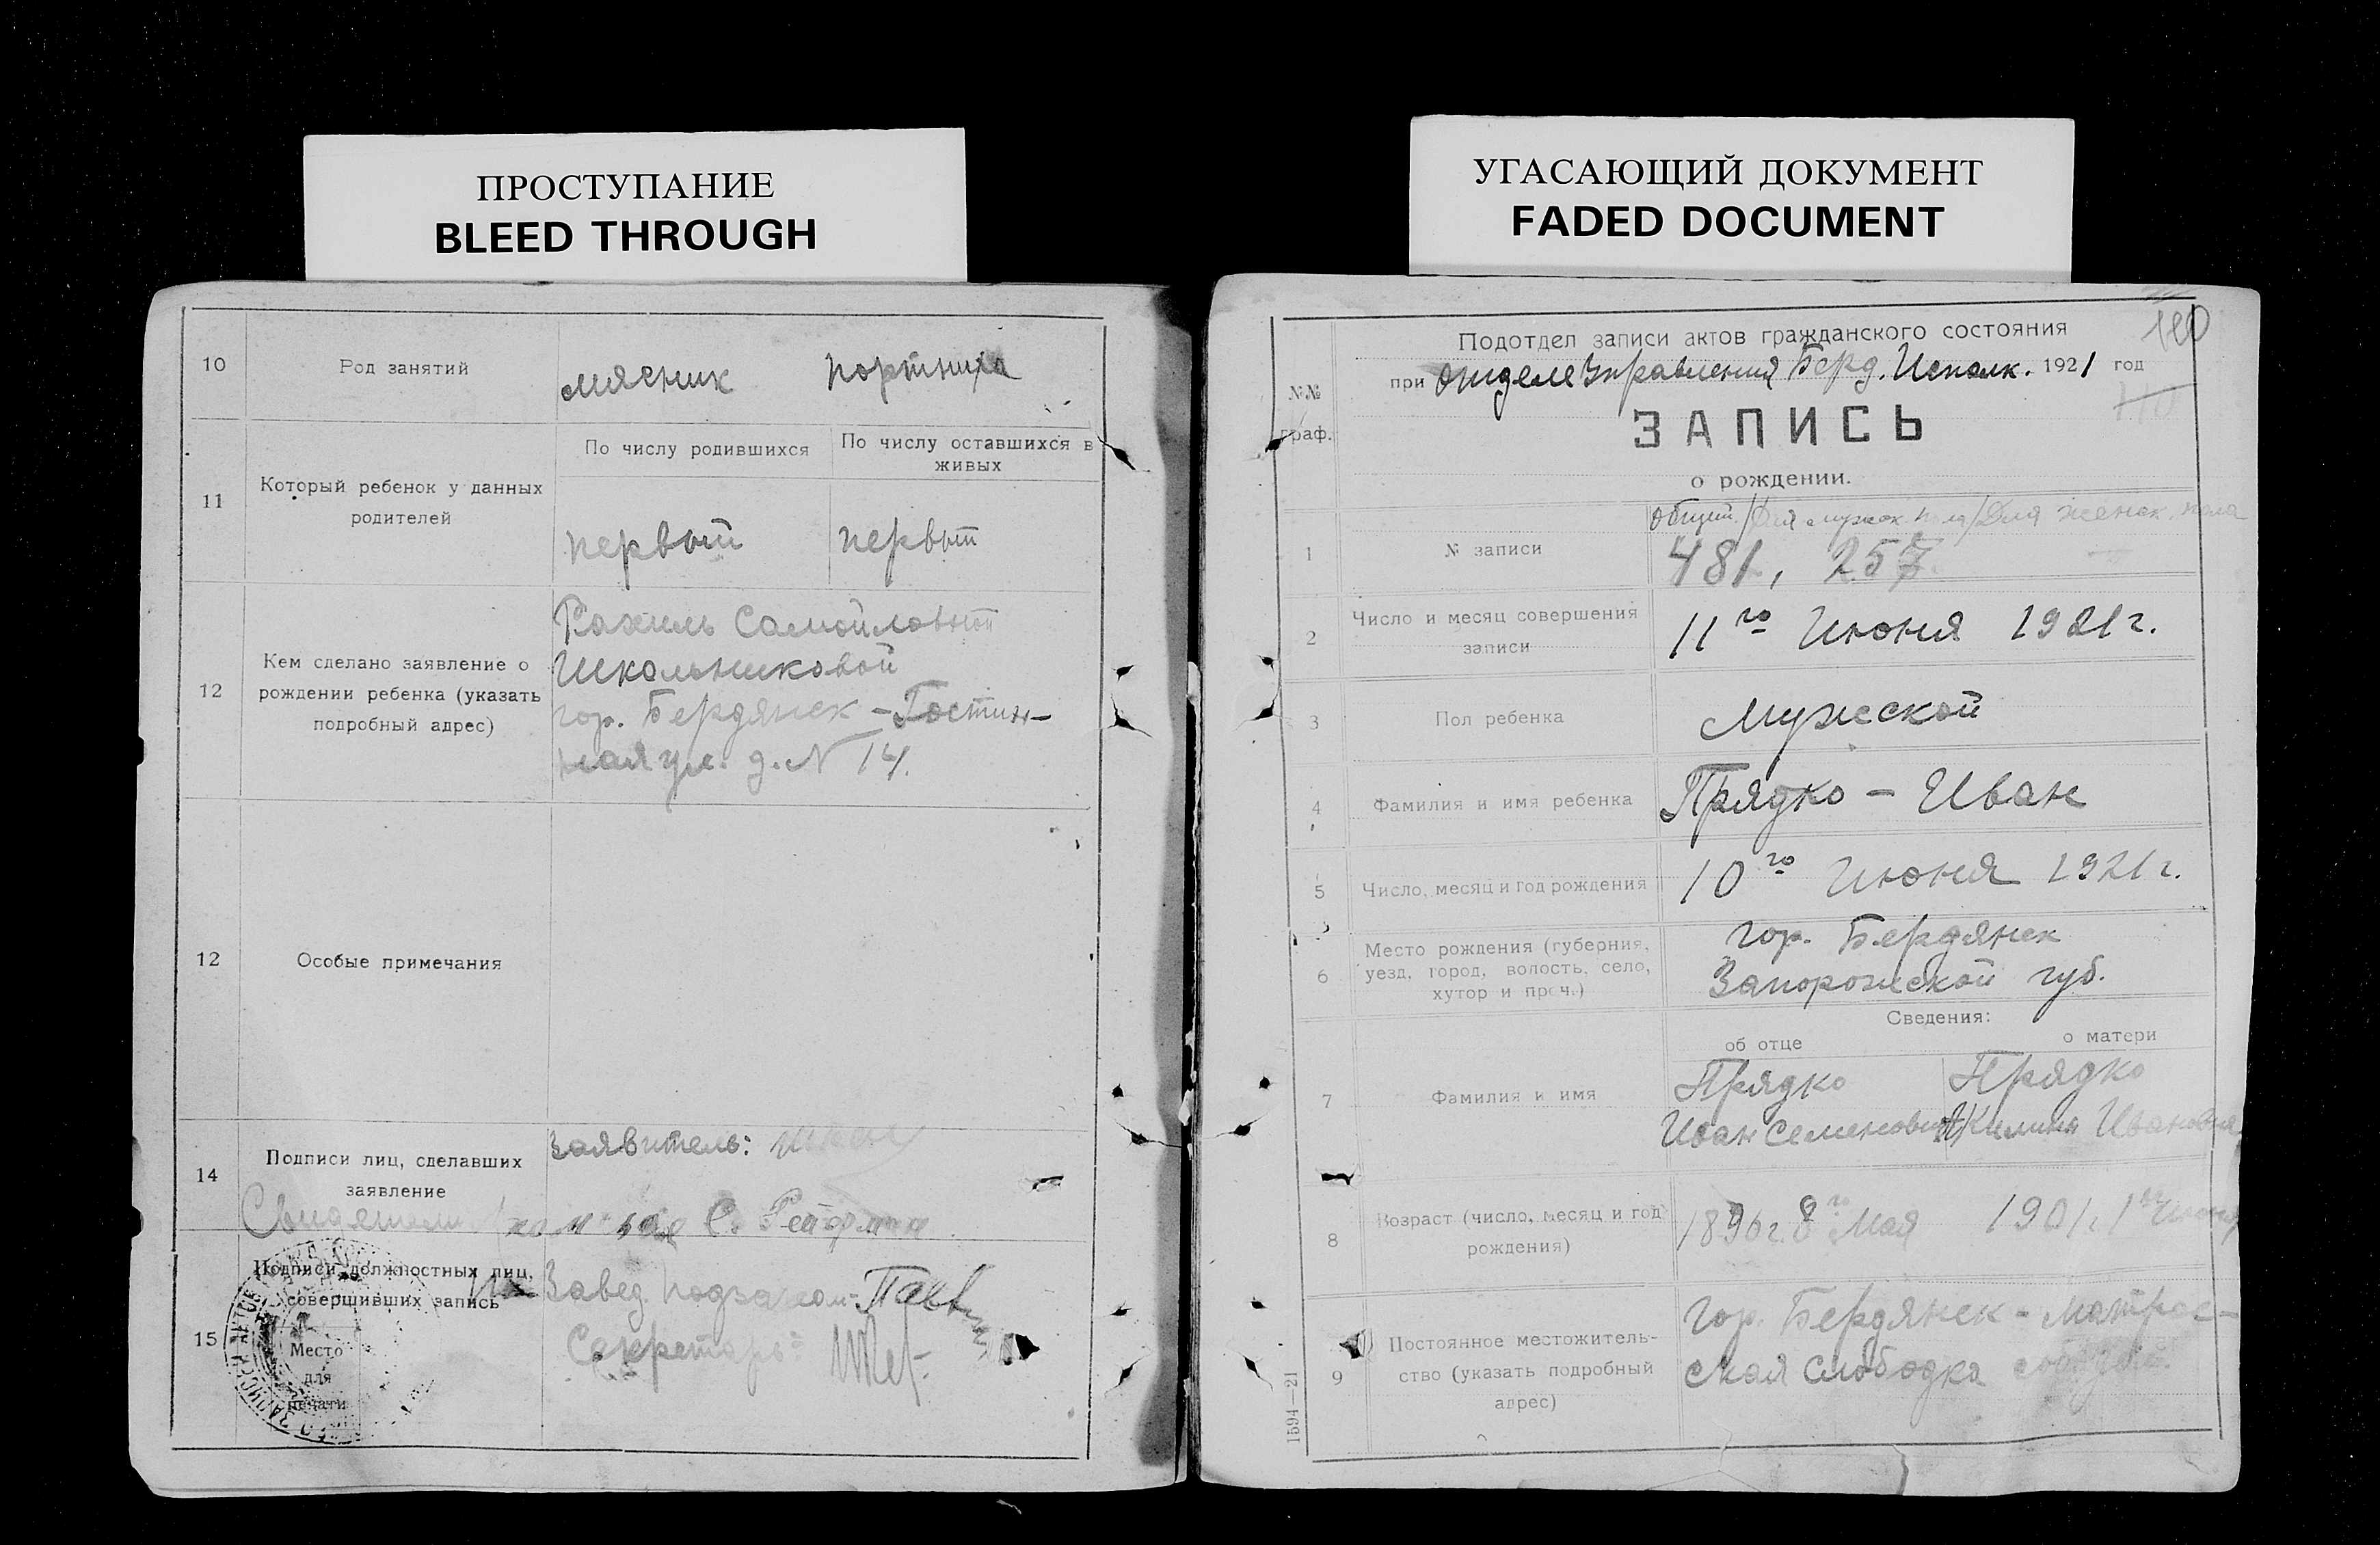 ПРОСТУПАНИЕ
BLEED THROUGH
УГАСАЮЩИЙ ДОКУМЕНТ
FADED DOCUMENT
10 Род занятий мясник портниха
По числу родившихся По числу оставшихся в живых
11 Который ребенок у данных родителей
первый первый
12 Кем сделано заявление о рождении ребенка (указать подробный адрес)
Рахиль Самойловной
Школьниковой
гор. Бердянск - Гостин-
ная ул. д. № 14.
12 Особые примечания
14 Подписи лиц, сделавших заявление
Заявитель:
15 Подписи должностных лиц, совершивших запись
Завед.
Секретарь:
Место
для
печати
180
Подотдел записи актов гражданского состояния
при Отделе Управления Берд. Исполк. 1921 год
№№ граф.
ЗАПИСЬ
о рождении.
общий / Для мужск. пола / Для женск. пола
1 № записи 481, 257 —
2 Число и месяц совершения записи 11го Июня 1921 г.
3 Пол ребенка Мужской
4 Фамилия и имя ребенка Прядко - Иван
5 Число, месяц и год рождения 10го Июня 1921 г.
6 Место рождения (губерния, уезд, город, волость, село, хутор и проч.)
гор. Бердянск
Запорожской губ.
Сведения:
об отце о матери
7 Фамилия и имя
Прядко Прядко
Иван Семенович Ивановна
8 Возраст (число, месяц и год рождения)
1896 г. 8го Мая 1901 г.
9 Постоянное местожительство (указать подробный адрес)
гор. Бердянск - Матрос-
ская Слободка
1594—21